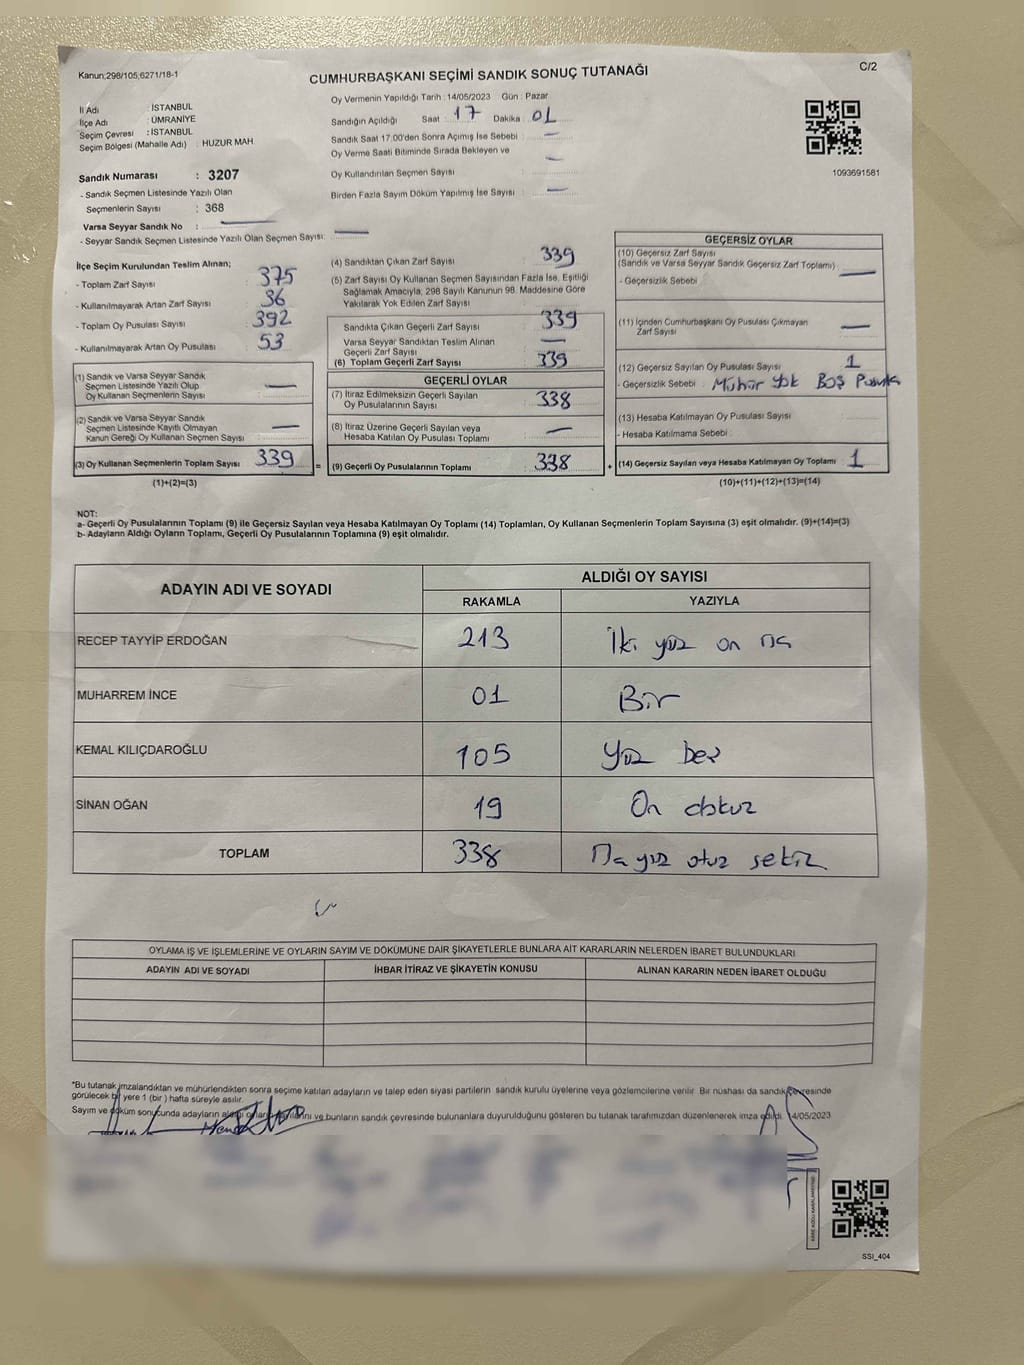 Kanun;298/105;6271/18-1
CUMHURBAŞKANI SEÇİMİ SANDIK SONUÇ TUTANAĞI
C/2
İl Adı : İSTANBUL
İlçe Adı : ÜMRANİYE
Seçim Çevresi : İSTANBUL
Seçim Bölgesi (Mahalle Adı) : HUZUR MAH
Sandık Numarası : 3207
- Sandık Seçmen Listesinde Yazılı Olan
Seçmenlerin Sayısı : 368
Varsa Seyyar Sandık No :
- Seyyar Sandık Seçmen Listesinde Yazılı Olan Seçmen Sayısı:
Oy Vermenin Yapıldığı Tarih : 14/05/2023 Gün : Pazar
Sandığın Açıldığı Saat : 17 Dakika : 01
Sandık Saat 17.00'den Sonra Açımış İse Sebebi :
Oy Verme Saati Bitiminde Sırada Bekleyen ve
Oy Kullandırılan Seçmen Sayısı :
Birden Fazla Sayım Döküm Yapılmış İse Sayısı :
1093691581
İlçe Seçim Kurulundan Teslim Alınan;
- Toplam Zarf Sayısı : 375
- Kullanılmayarak Artan Zarf Sayısı : 36
- Toplam Oy Pusulası Sayısı : 392
- Kullanılmayarak Artan Oy Pusulası : 53
(1) Sandık ve Varsa Seyyar Sandık
Seçmen Listesinde Yazılı Olup
Oy Kullanan Seçmenlerin Sayısı :
(2) Sandık ve Varsa Seyyar Sandık
Seçmen Listesinde Kayıtlı Olmayan
Kanun Gereği Oy Kullanan Seçmen Sayısı :
(3) Oy Kullanan Seçmenlerin Toplam Sayısı : 339
(1)+(2)=(3)
=
(4) Sandıktan Çıkan Zarf Sayısı : 339
(5) Zarf Sayısı Oy Kullanan Seçmen Sayısından Fazla İse, Eşitliği
Sağlamak Amacıyla, 298 Sayılı Kanunun 98. Maddesine Göre
Yakılarak Yok Edilen Zarf Sayısı :
Sandıkta Çıkan Geçerli Zarf Sayısı : 339
Varsa Seyyar Sandıktan Teslim Alınan
Geçerli Zarf Sayısı :
(6) Toplam Geçerli Zarf Sayısı : 339
GEÇERLİ OYLAR
(7) İtiraz Edilmeksizin Geçerli Sayılan
Oy Pusulalarının Sayısı : 338
(8) İtiraz Üzerine Geçerli Sayılan veya
Hesaba Katılan Oy Pusulası Toplamı :
(9) Geçerli Oy Pusulalarının Toplamı : 338
+
GEÇERSİZ OYLAR
(10) Geçersiz Zarf Sayısı
(Sandık ve Varsa Seyyar Sandık Geçersiz Zarf Toplamı) :
- Geçersizlik Sebebi :
(11) İçinden Cumhurbaşkanı Oy Pusulası Çıkmayan
Zarf Sayısı :
(12) Geçersiz Sayılan Oy Pusulası Sayısı : 1
- Geçersizlik Sebebi : Mühür Yok Boş Pusula
(13) Hesaba Katılmayan Oy Pusulası Sayısı :
- Hesaba Katılmama Sebebi :
(14) Geçersiz Sayılan veya Hesaba Katılmayan Oy Toplamı : 1
(10)+(11)+(12)+(13)=(14)
NOT:
a- Geçerli Oy Pusulalarının Toplamı (9) ile Geçersiz Sayılan veya Hesaba Katılmayan Oy Toplamı (14) Toplamları, Oy Kullanan Seçmenlerin Toplam Sayısına (3) eşit olmalıdır. (9)+(14)=(3)
b- Adayların Aldığı Oyların Toplamı, Geçerli Oy Pusulalarının Toplamına (9) eşit olmalıdır.
ADAYIN ADI VE SOYADI ALDIĞI OY SAYISI
RAKAMLA YAZIYLA
RECEP TAYYİP ERDOĞAN 213 İki yüz on üç
MUHARREM İNCE 01 Bir
KEMAL KILIÇDAROĞLU 105 Yüz beş
SİNAN OĞAN 19 On dokuz
TOPLAM 338 Üç yüz otuz sekiz
OYLAMA İŞ VE İŞLEMLERİNE VE OYLARIN SAYIM VE DÖKÜMÜNE DAİR ŞİKAYETLERLE BUNLARA AİT KARARLARIN NELERDEN İBARET BULUNDUKLARI
ADAYIN ADI VE SOYADI İHBAR İTİRAZ VE ŞİKAYETİN KONUSU ALINAN KARARIN NEDEN İBARET OLDUĞU
*Bu tutanak imzalandıktan ve mühürlendikten sonra seçime katılan adayların ve talep eden siyasi partilerin sandık kurulu üyelerine veya gözlemcilerine verilir. Bir nüshası da sandık çevresinde
görülecek bir yere 1 (bir) hafta süreyle asılır.
Sayım ve döküm sonucunda adayların aldığı ve bunların sandık çevresinde bulunanlara duyurulduğunu gösteren bu tutanak tarafımızdan düzenlenerek imza edildi. 14/05/2023
SSI_404